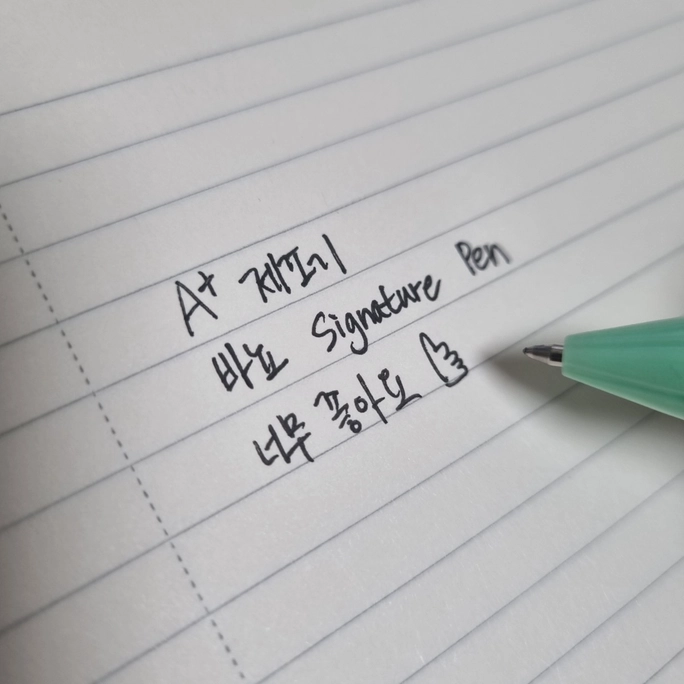 A+ 제포기
바뇨 Signature Pen
너무 좋아요